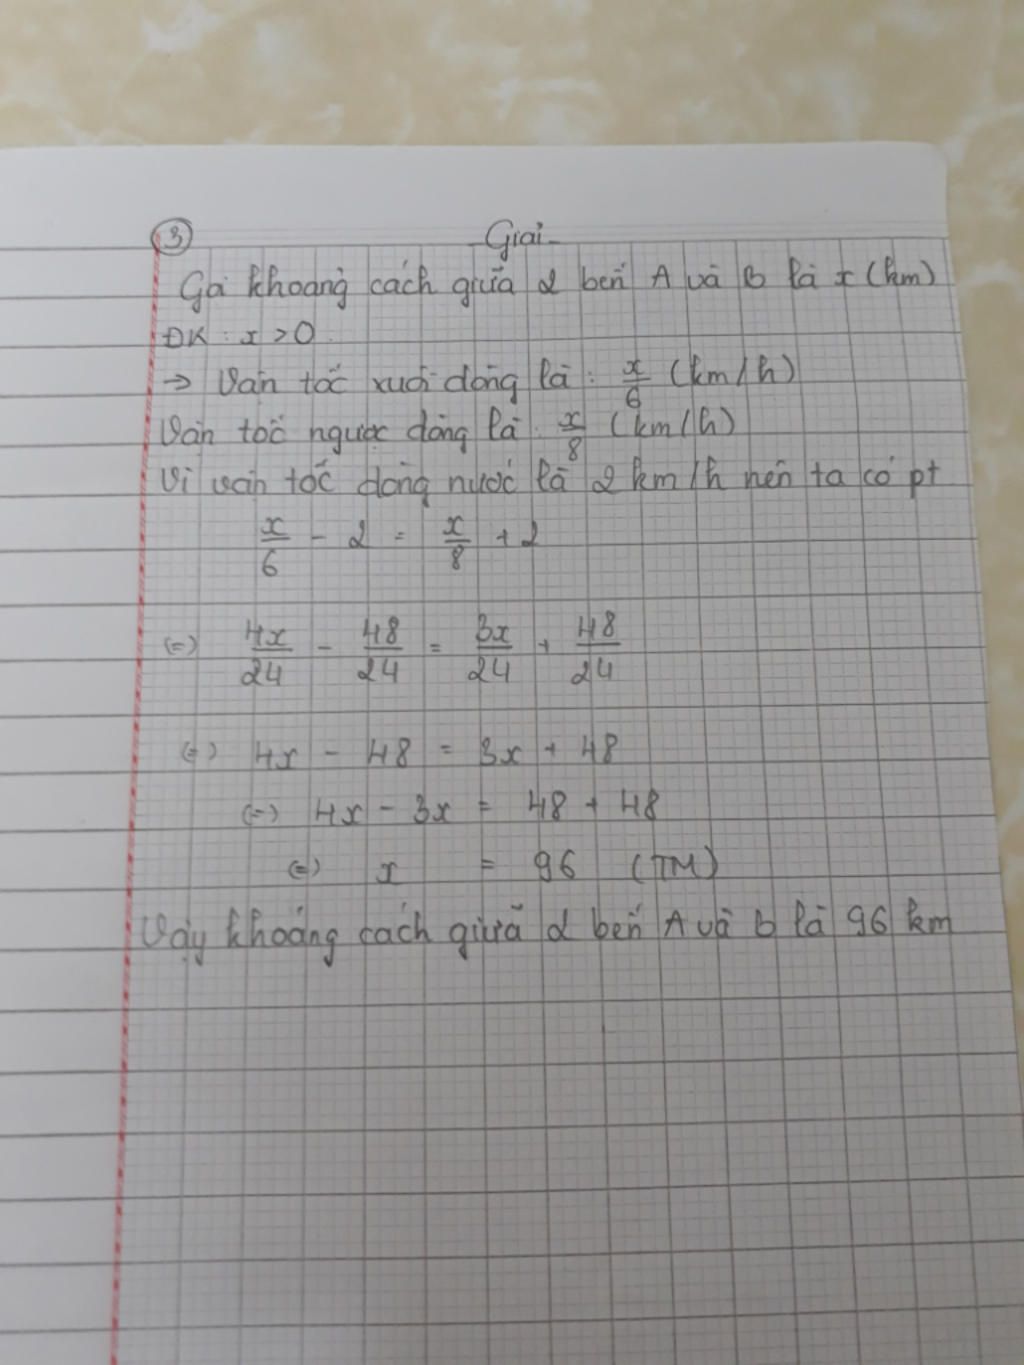 ③ Giải
Gọi khoảng cách giữa 2 bến A và B là x (km)
ĐK : x > 0
→ Vận tốc xuôi dòng là : x/6 (km/h)
Vận tốc ngược dòng là : x/8 (km/h)
Vì vận tốc dòng nước là 2 km/h nên ta có pt
x/6 - 2 = x/8 + 2
(=) 4x/24 - 48/24 = 3x/24 + 48/24
(=) 4x - 48 = 3x + 48
(=) 4x - 3x = 48 + 48
(=) x = 96 (TM)
Vậy khoảng cách giữa 2 bến A và B là 96 km